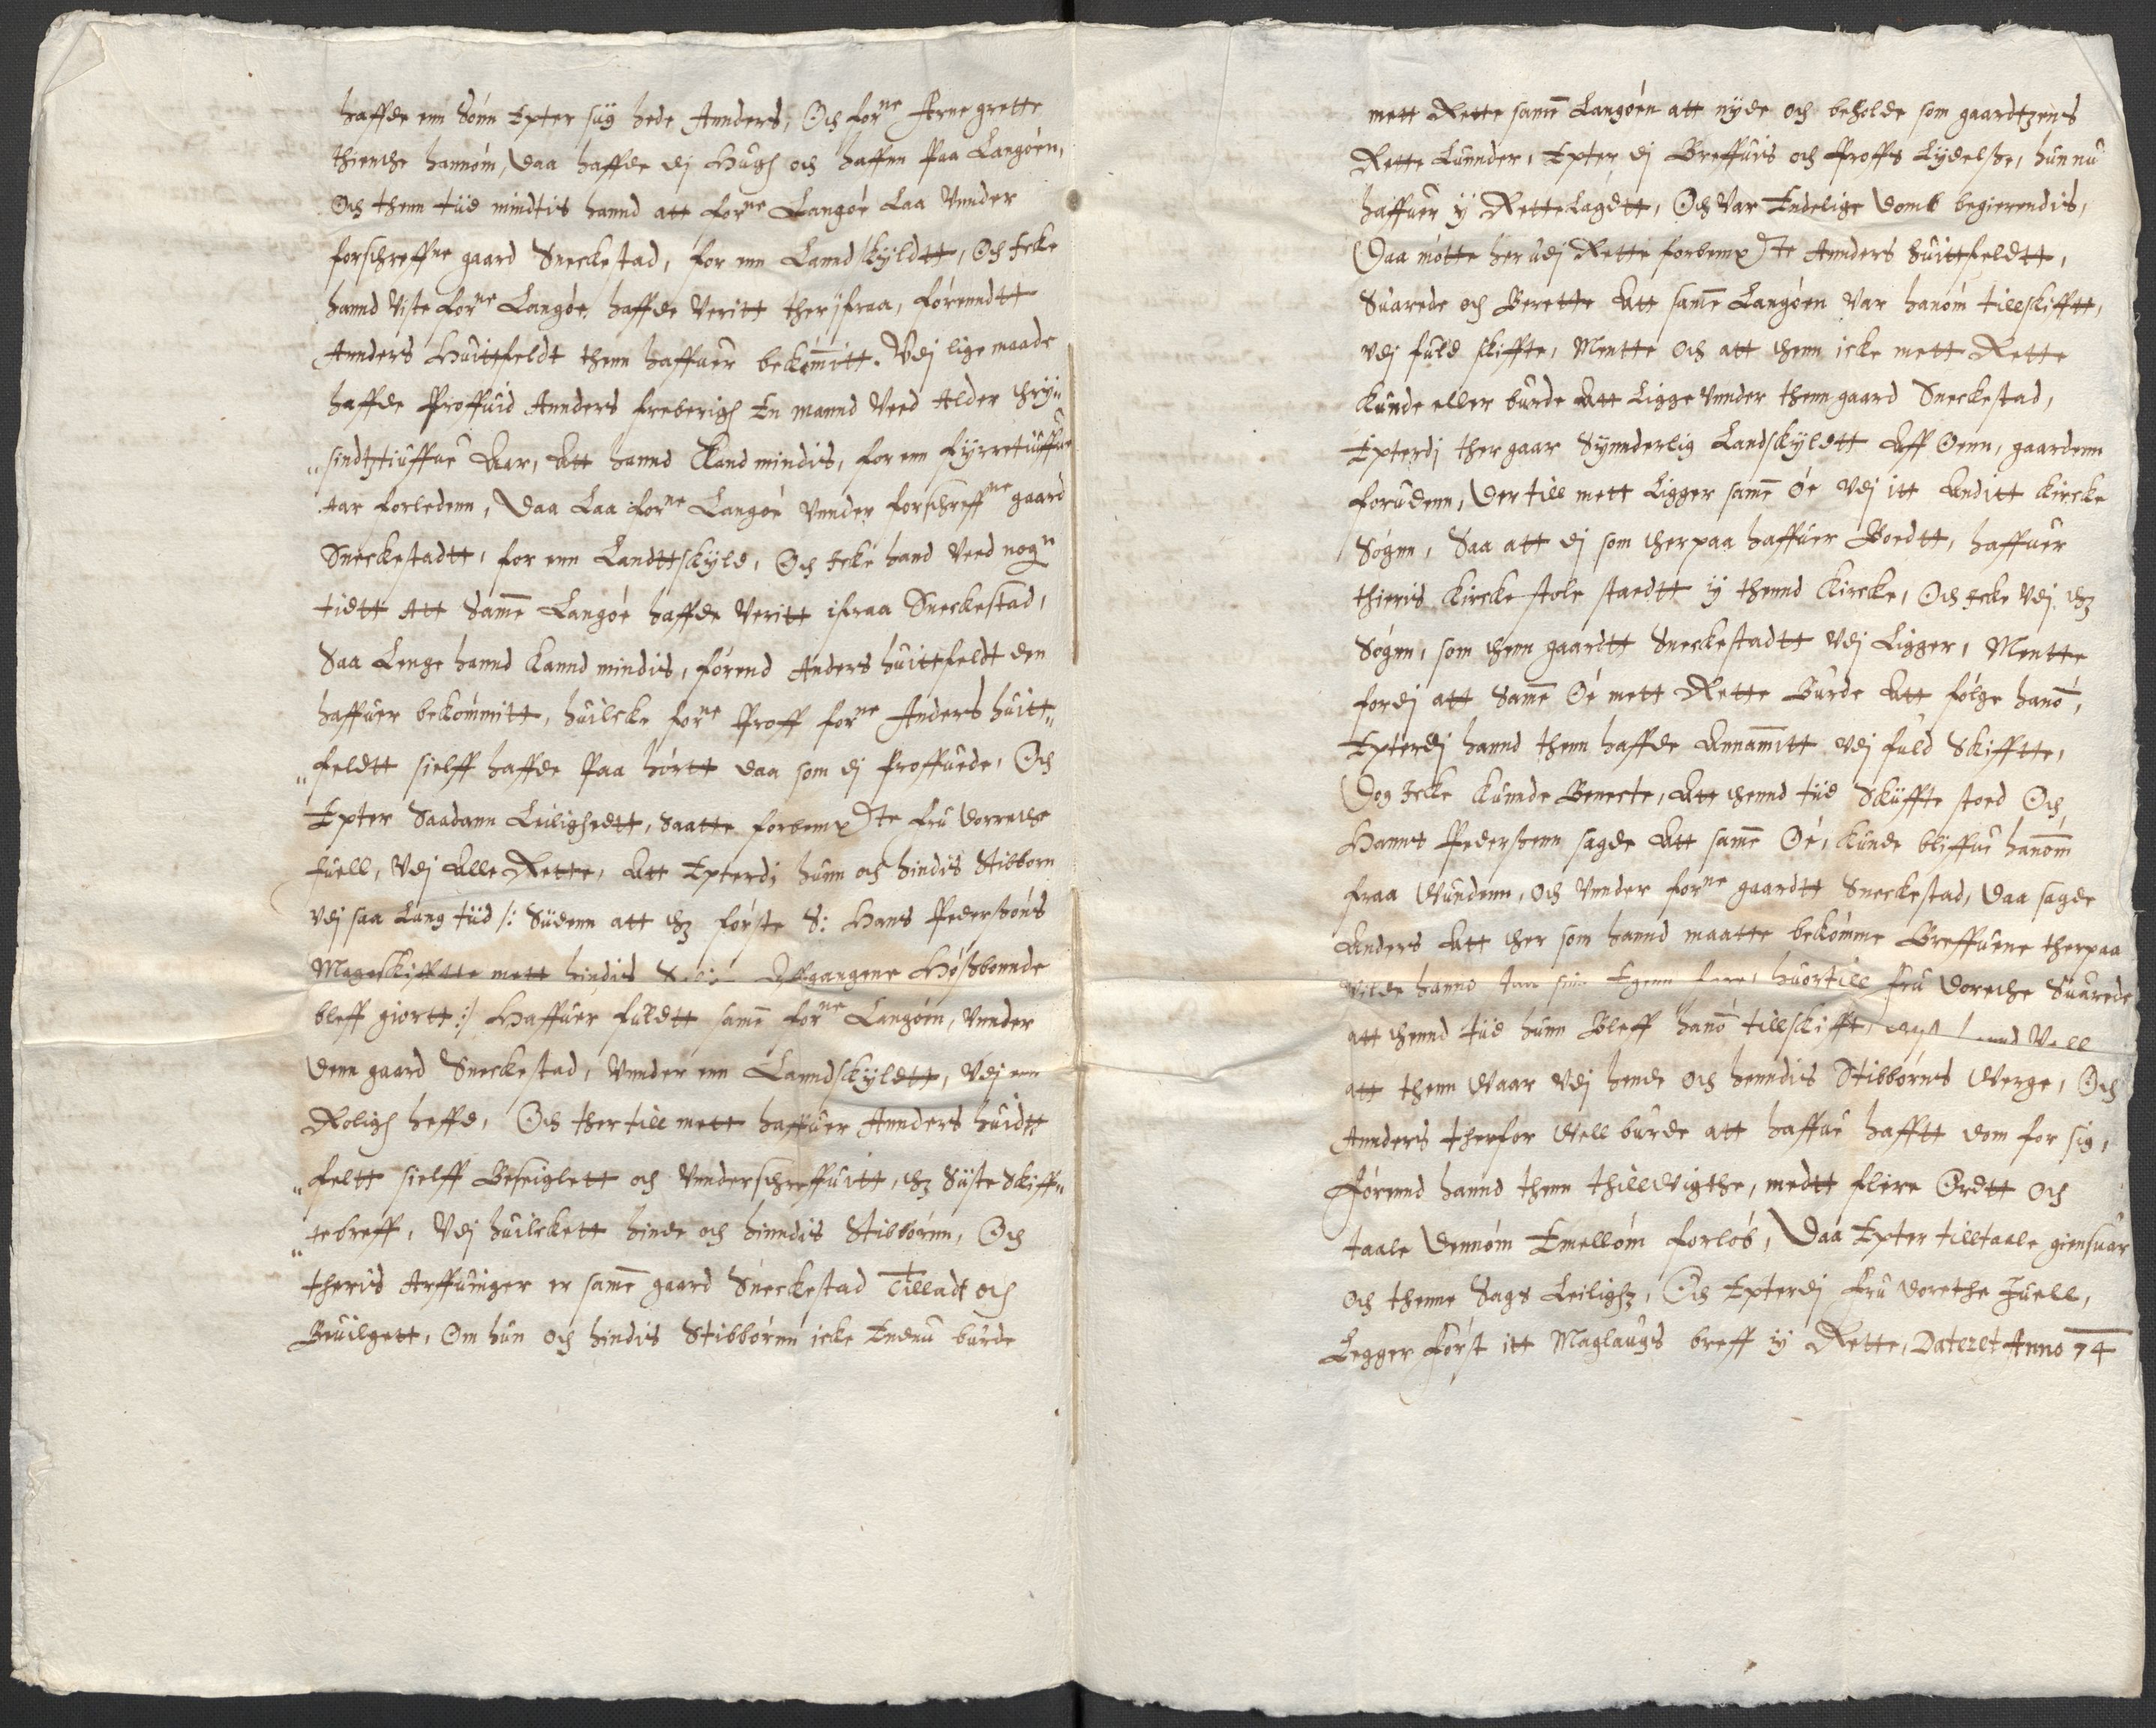 haffde enn Sönn Epter siig hede Annders, Och forne Arne grette
thiente hannom, Daa haffde dj Hugh och haffnn Paa Langöen,
Och thenn tiid mindtis hannd att forne Langöe Laa Vnnder
forschreffne gaard Sneckestad, for enn Lannd skyldtt, Och Icke
hannd Viste forne Langöe haffde Veritt ther ifraa, förenndtt
Annders Huittfeldt thenn haffuer bekommitt. Vdj lige maade
haffde Proffuid Annders freberigh En mannd Veed Alder thry„
„sindtztiuffue Aar, Att hannd Kand mindis, for enn fyrretiuffue
Aar forledenn, Daa Laa forne Langöe Vnnder forschreffne gaard
Sneckestadtt, for enn Landttskyld, Och Icke hand Veed nogn
tidtt Att Samme Langöe haffde Veritt ifraa Sneckestad,
Saa Lenge hannd Kannd mindis, förend Anders huittfeldt den
haffuer bekommitt, huilcke forne Proff forne Anders huitt„
„feldtt sielff haffde Paa hörtt daa som dj Proffuede, Och
Epter Saadann Leilighedtt, Saatte forbempte fru Dorrethe
Juell, Vdj Alle Rette, Att Epterdj hunn och hindis Stibborn
Vdj saa Lang tiid /: Sidenn att thz förste S: Hans Pedersöns
Mageskifftte mett hindis Affgangene Hößbonnde
bleff giortt :/ Haffuer fuldtt samme forne Langöen, Vnnder
denn gaard Sneckestad, Vnnder enn Lanndskyldtt, Vdj enn
Roligh heffd, Och ther till mett haffuer Annders huidtt
„feltt sielff Beseiglett och Vnderschreffuitt, thz Siiste Skiff„
„tebreff, Vdj huilckett hinde och hinndis Stibbornn, Och
theris Arffuinger er samme gaard Sneckestad Tilladt och
Beuilgett, Om hun och hindis Stibbornn icke Endnu burde
mett Rette samme Langöen att nyde och beholde som gaardtzens
Rette Lunnder, Epter dj Breffuis och Proffs Lydelße, hun nu
haffuer ij Rette Lagdtt, Och Var Endelige domb begierendis,
Daa mötte her udj Rette forbempte Annders huittfeldtt,
Suarede och Berette Att samme Langöen Var hanom tillskifftt,
Vdj fuld skiffte, Mentte Och att thenn icke mett Rette
Kunde eller burde Att Ligge Vnnder thenn gaard Sneckestad,
Epterdj ther gaar Synnderlig Landskyldtt Aff Öenn, gaardenn
forudenn, Der till mett Ligger samme öe Vdj itt Anditt Kircke
Sognn, Saa att dj som therpaa haffuer Boedtt, haffuer
thieris Kircke stole staedtt ij thennd Kircke, Och Icke Vdj thz
Sognn, som thenn gaardtt Sneckestadtt Vdj Ligger, Mentte
fordj att Samme Öe mett Rette Burde Att fölge hanom,
Epterdj hannd thenn haffde Annammitt Vdj fuld Skifftte,
Dog Icke Kunde Benecte, Att thennd tiid Skiffte stoed Och
Hanns Pederßenn sagde Att samme Öe, Kunde bliffue hanom
fraa Wunden, och Vnnder forne gaardtt Sneckestad, Daa sagde
Anders Att ther som hannd maatte bekomme Breffuene therpaa
Vilde hannd sin Egenn huortill fru Dorethe Suarede
att thennd tiid hunn Bleff hanom tillskifft, Vell
att thenn Waar Vdj hende och henndis Stibborns Werge, Och
Annders therfor Well burde att haffue hafftt dom for sig,
Förennd hannd thenn thillWigthe, medtt flere Ordtt Och
taale Dennom Emellom forlob, Daa Epter tilltaale giensuar
och thenne Sags Leilighz, Och Epterdj Fru Dorethe Juell,
Legger förßt itt Maglaugs breff ij Rette, Dateret Anno 74